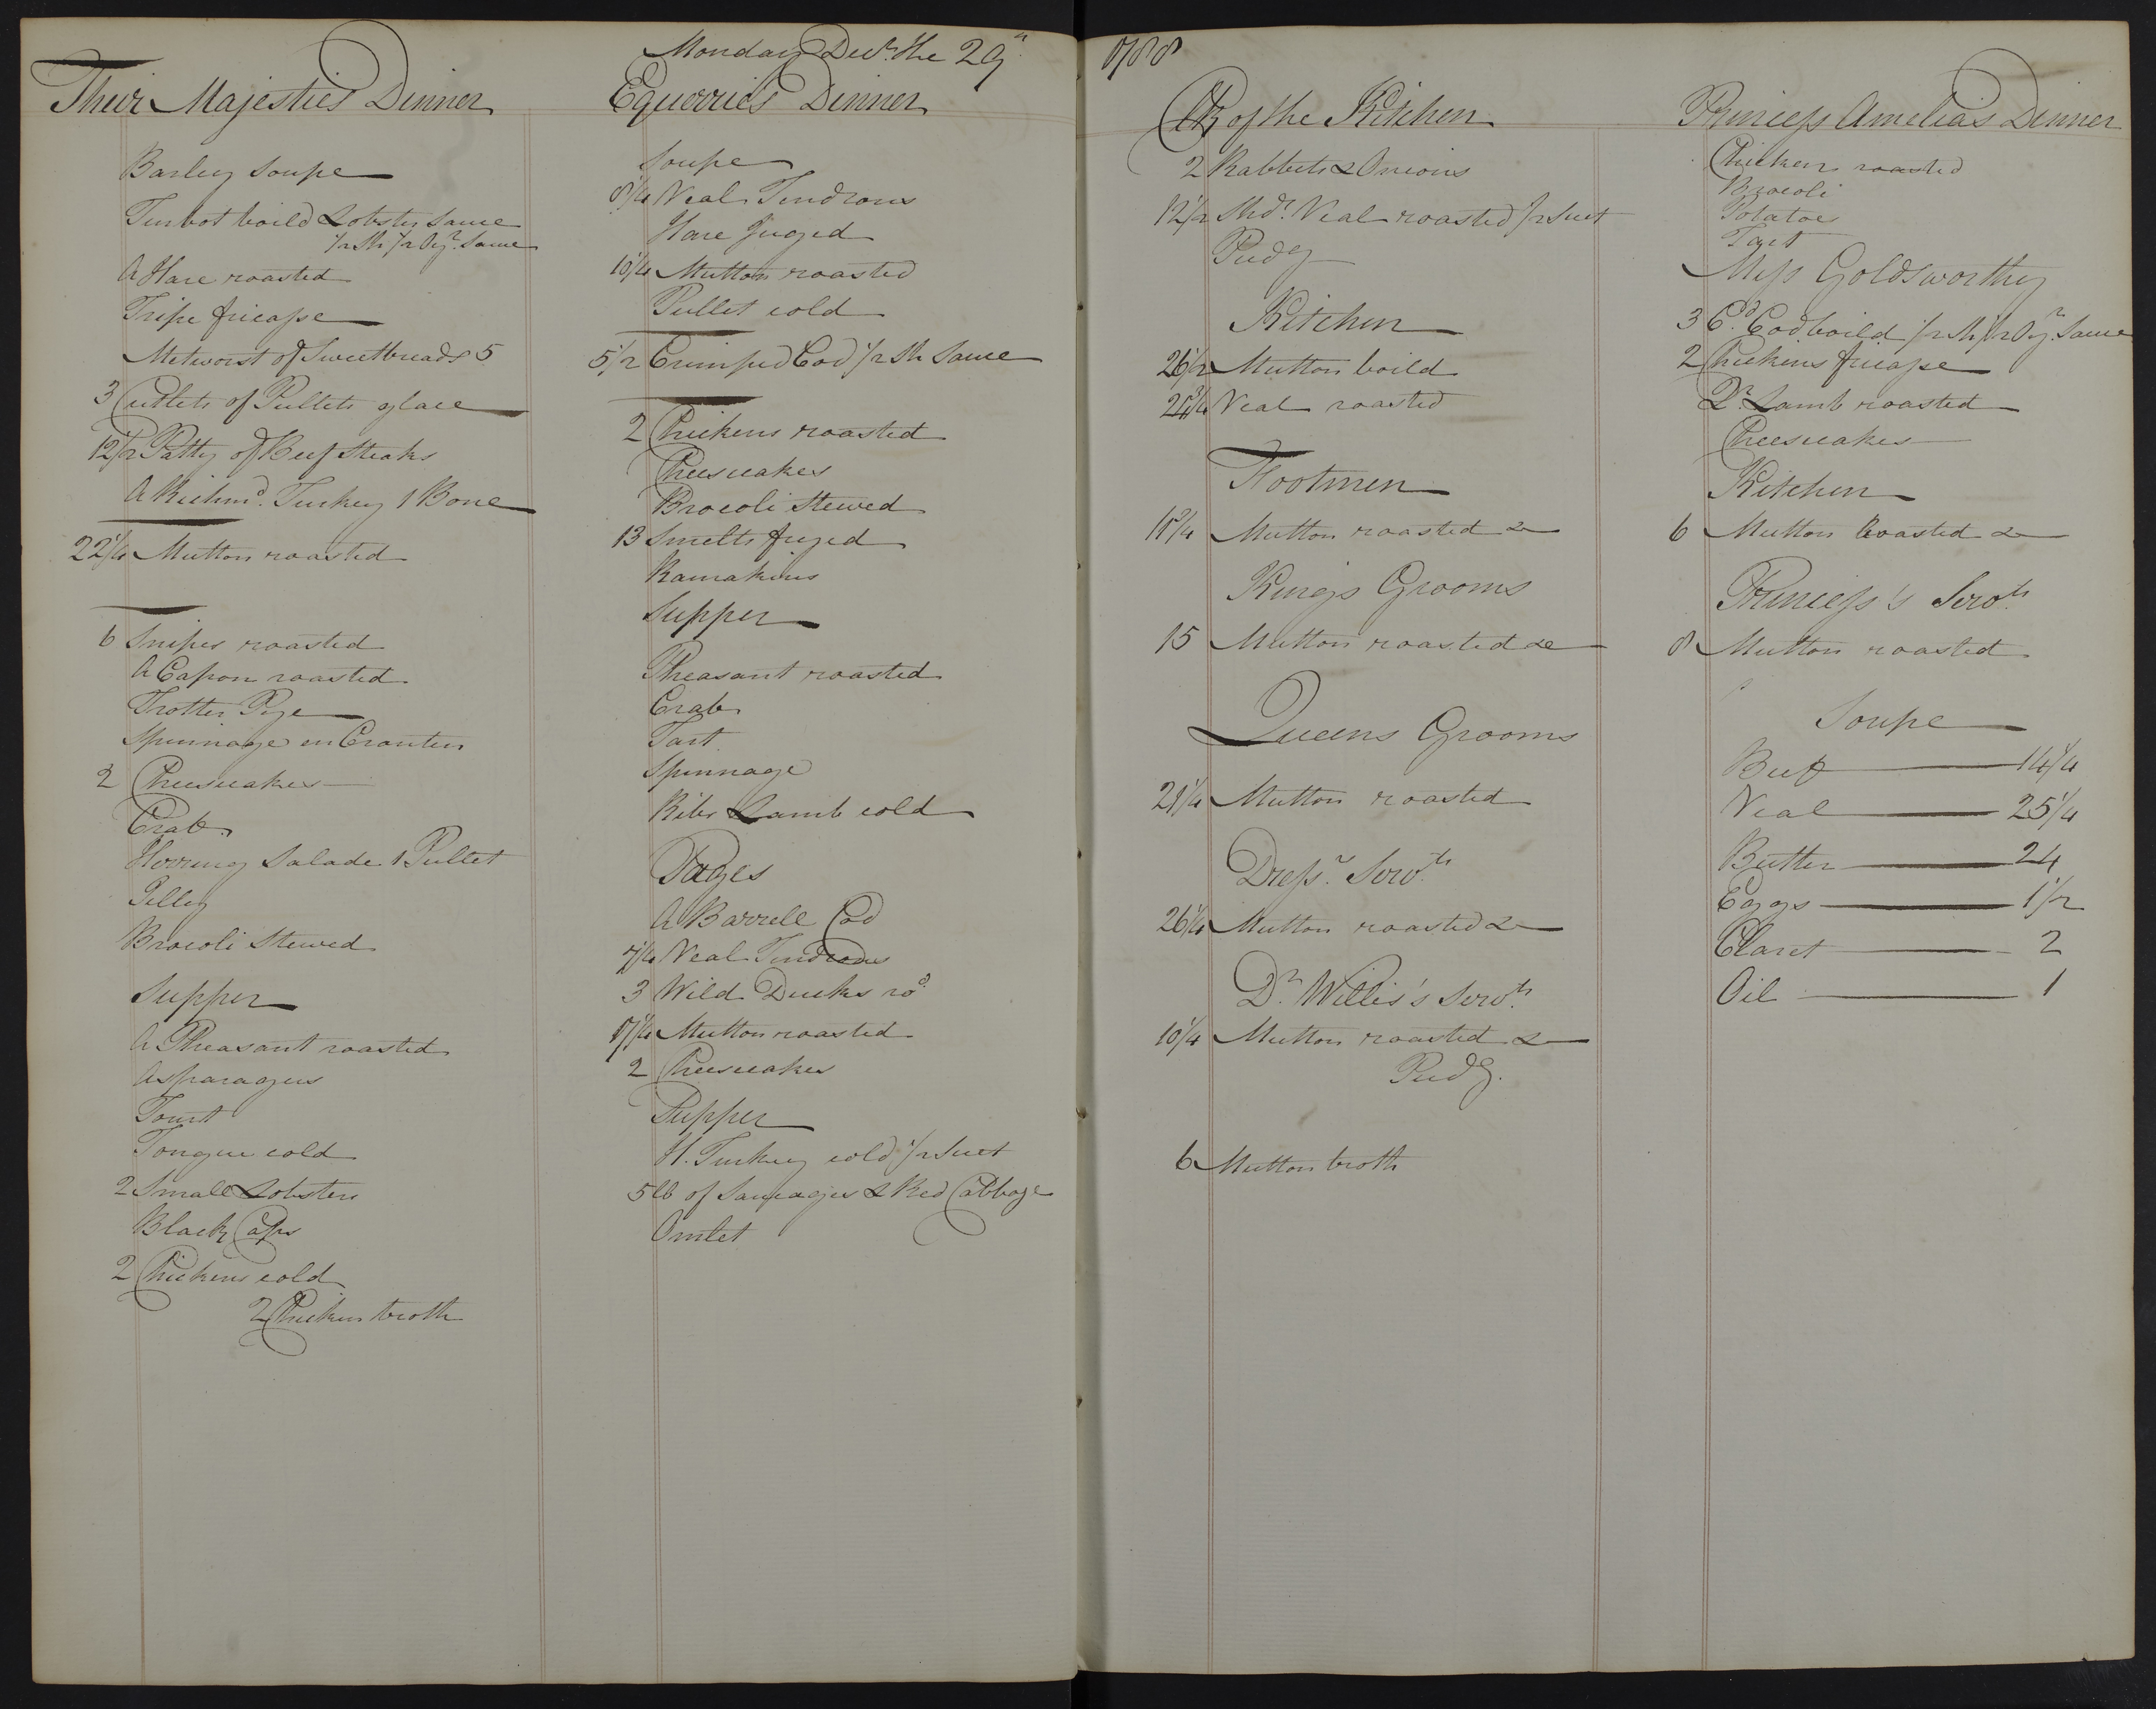 Monday Decr. the 29th
1788
Their Majesties Dinner
Barley Soupe
Turbot boild Lobster Sauce
1/2 Sh 1/2 Oyr. Sauce
A Hare roasted
Tripe fricasse
Metworst of Sweetbreads 5
3 Cutlets of Pullets glace
12 1/2 Patty of Beef Steaks
A Richmd. Turkey 1 Bone
22 1/4 Mutton roasted
6 Snipes roasted
A Capon roasted
Trotter Pye
Spinnage en Croutin
2 Cheescakes
Crab
Herring Salade 1 Pullet
Gelley
Brocoli Stewed
Supper
A Pheasant roasted
Asparagus
Tourt
Tongue cold
2 Small Lobsters
Black Caps
2 Chickens cold
2 Chicken broth
Equerries Dinner
Soupe
8 1/4 Veal Tendrons
Hare Juged
10 1/4 Mutton roasted
Pullet cold
5 1/2 Crimped Cod 1/2 Sh Sauce
2 Chickens roasted
Cheescakes
Brocoli Stewed
13 Smelts fryed
Ramakins
Supper
Pheasant roasted
Crab
Tart
Spinnage
Ribs Lamb cold
Pages
A Barrell Cod
7 1/4 Veal Tendrons
3 Wild Ducks rod.
17 1/4 Mutton roasted
2 Cheescakes
Supper
H. Turkey cold 1/2 Suet
5 lb of Sausages & Red Cabbage
Omlet
Clk of the Kitchen
2 Rabbits & Onions
12 1/2 Shdr. Veal roasted 1/2 Suet
Pudg
Kitchen
26 1/2 Mutton boild
Veal roasted
Footmen
Mutton roasted &
Kings Grooms
15 Mutton roasted &
Queens Grooms
21 1/4 Mutton roasted
Dressr. Servts.
26 1/4 Mutton roasted &
Dr. Willis's Servts.
10 1/4 Mutton roasted &
Pudg.
6 Mutton broth
Princess Amelia's Dinner
Chicken roasted
Brocoli
Potatoe
Tart
Miss Goldsworthy
3 Cd. Cod boild 1/2 Sh 1/2 Oyr. Sauce
2 Chickens fricasse
Qr. Lamb roasted
Cheescakes
Kitchen
6 Mutton Roasted &
Princess's Servts.
8 Mutton roasted
Soupe
Beef 14 1/4
Veal 25 1/4
Butter 24
Eggs 1 1/2
Claret 2
Oil 1